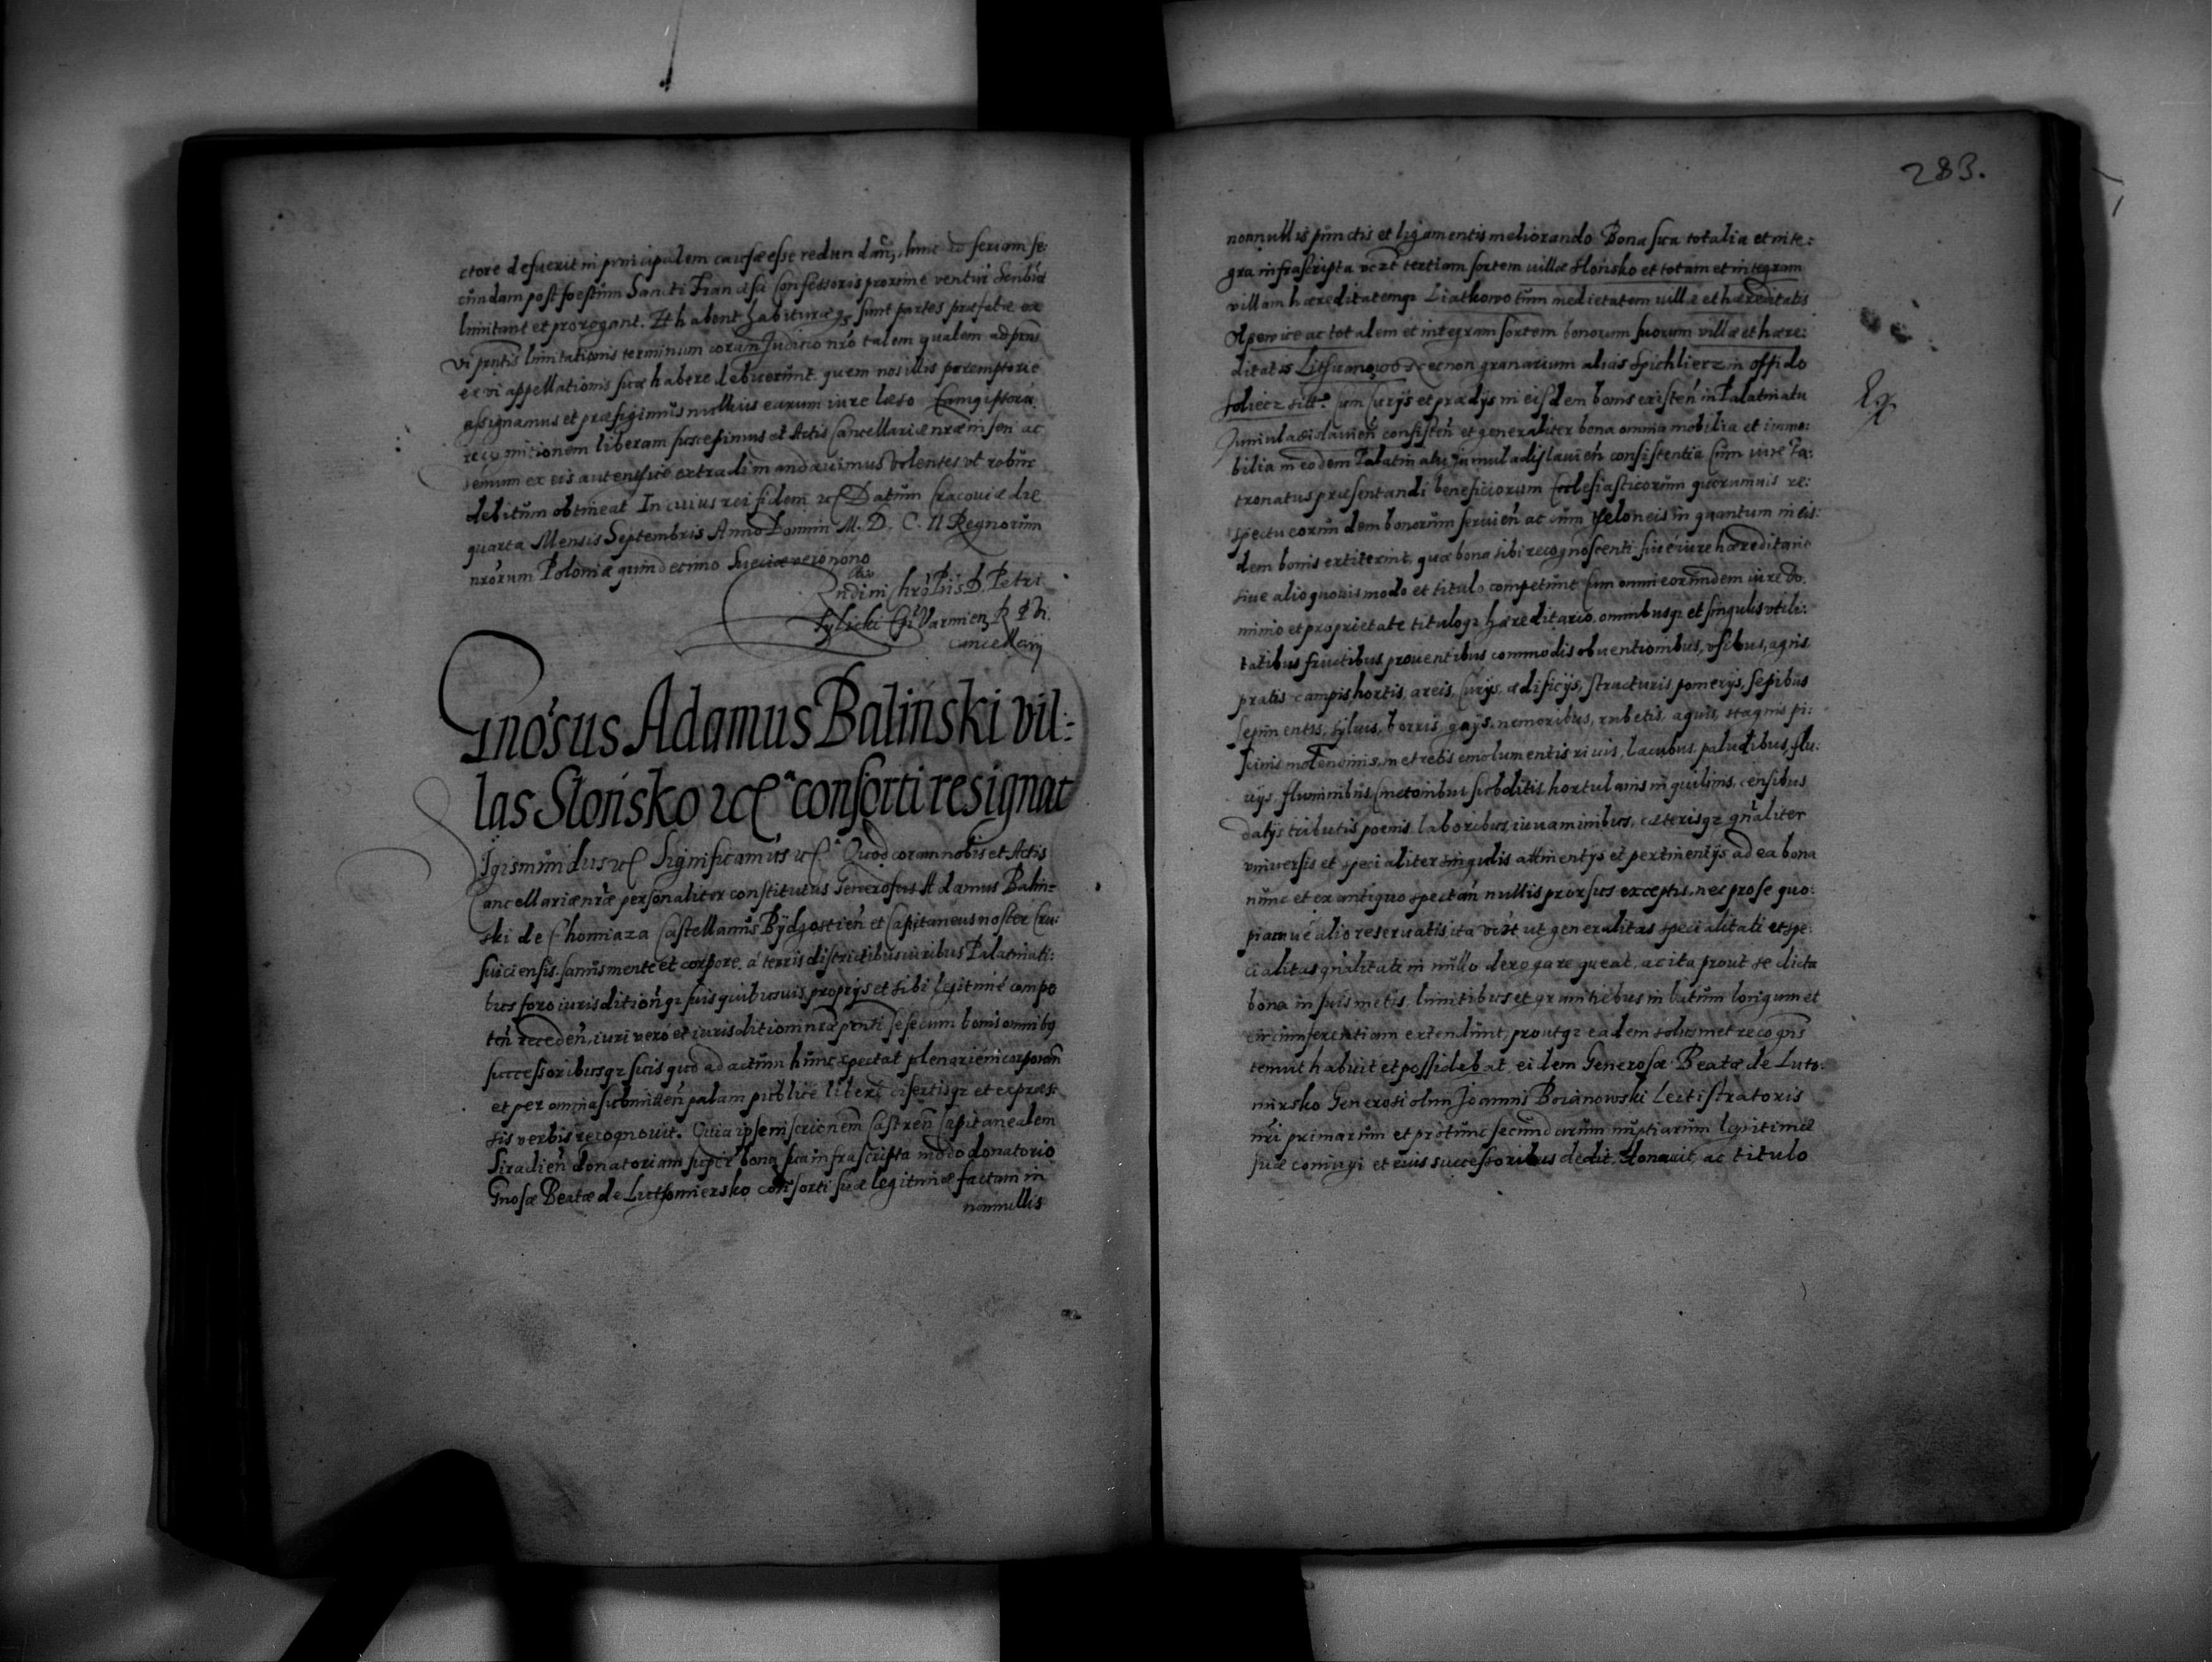 ctore defuerit in principalem causæ esse redundañ, hinc ad feriam se:
cundam post foestum Sancti Francisci Confessoris proxime venturi
limitant et prorogant. Et habent habituræqȝ sunt partes præfatæ ex
vi prntis limitationis terminum coram Judicio nro talem qualem ad prns
ex vi appellationis suæ habere debuerunt. quem nos illis peremptorie
assignamus et præfigimus nullius earum iure læso
recognitionem liberam suscepimus et Actis Cancellariæ nræ inseri ac
demum ex eis autentice extradi mandauimus Volentes vt robur
debitum obtineat. In cuius rei fidem ꝛc Datum Cracouiæ die
quarta Mensis Septembris Anno Domini M. D. C. II Regnorum
nrorum Poloniæ quindecimo Sueciæ vero nono
Rndi in Chro Pris D. Petri
Tylicki Epi Varmien R P Vi.
Cancellarij
Gnosus Adamus Baliński vil:
las Słońsko ꝛc consorti resignat
Sigismundus ꝛc Significamus ꝛc Quod coram nobis et Actis
Cancellariæ nræ personaliter constitutus Generosus Adamus Balin=
ski de Chomiaza Castellanus Bÿdgostień et Capitaneus noster Cru:
suiciensis. sanus mente et corpore. a terris districtibus iuribus Palatinati:
bus foro iurisditionqȝ suis quibusuis proprijs et sibi legitime compe
teñ recedeñ, iuri vero et iurisditioni nræ prnti se secum bonis omnibȝ
successoribusqȝ suis quo ad actum hunc spectat plenarie incorporañ
et per omnia submitteñ palam publice libere disertisqȝ et expres:
sis verbis recognouit. Quia ipse inscriönem Castreñ Capitanealem
Siradień donatoriam super bona sua infrascripta modo donatorio
Gnosæ Beatæ de Luthomiersko consorti suæ legitimæ factam in
nonnullis
283.
nonnullis punctis et ligamentis meliorando Bona sua totalia et inte:
gra infrascripta vczt tertiam sortem villæ Słońsko et totam et integram
villam hæreditatemqȝ Liatkowo tum medietatem villæ et hæreditatis
Opewice ac totalem et integram sortem bonorum suorum villæ et hære:
ditatis Litfianowo necnon granarium alias Spichlierz in oppido
Soliecz sitt. Cum Curijs et prædijs in eisdem bonis existeñ in Palatinatu
Juniuladislauień consisteñ et generaliter bona omnia mobilia et immo:
bilia in eodem Palatinatu Juniuladislauień consistentia Cum iure Pa:
tronatus præsentandi beneficiorum Ecclesiasticorum quorumuis re:
spectu eorundem bonorum seruień ac cum teloneis in quantum in eis:
dem bonis extiterint, quæ bona sibi recognoscenti siue iure hæreditario
siue alio quouis modo et titulo competunt Cum omni eorundem iure do:
minio et proprietate tituloqȝ hæreditario omnibusqȝ et singulis vtili:
tatibus fructibus prouentibus commodis obuentionibus, vsibus, agris,
pratis campis, hortis, areis, Curijs, ædificijs, structuris pomerijs, sepibus
sepimentis, syluis, borris gaijs, nemoribus, rubetis, aquis, stagnis pi:
scinis molendinis, metretis emolumentis riuis, lacubus. paludibus, flu:
uijs. fluminibus, Cmetonibus subditis, hortulanis inquilinis, censibus
datijs tributis poenis laboribus, iuuaminibus, cæterisqȝ gnaliter
vniuersis et specialiter singulis attinentijs et pertinentijs ad ea bona
nunc et ex antiquo spectań nullis prorsus exceptis. nec pro se quo:
piamue alio reseruatis, ita vczt ut generalitas specialitati et spe:
cialitas gnalitati in nullo derogare queat, ac ita prout se dicta
bona in suis metis, limitibus et granitiebus in latum longum et
circumferentiam extendunt, proutqȝ eadem solusmet recogns
tenuit habuit et possidebat, eidem Generosæ Beatæ de Luto:
mirsko Generosi olim Joannis Boianowski
nri primarum et pro tunc secundarum nuptiarum legitimæ
suæ coniugi et eius successoribus dedit, donauit, ac titulo